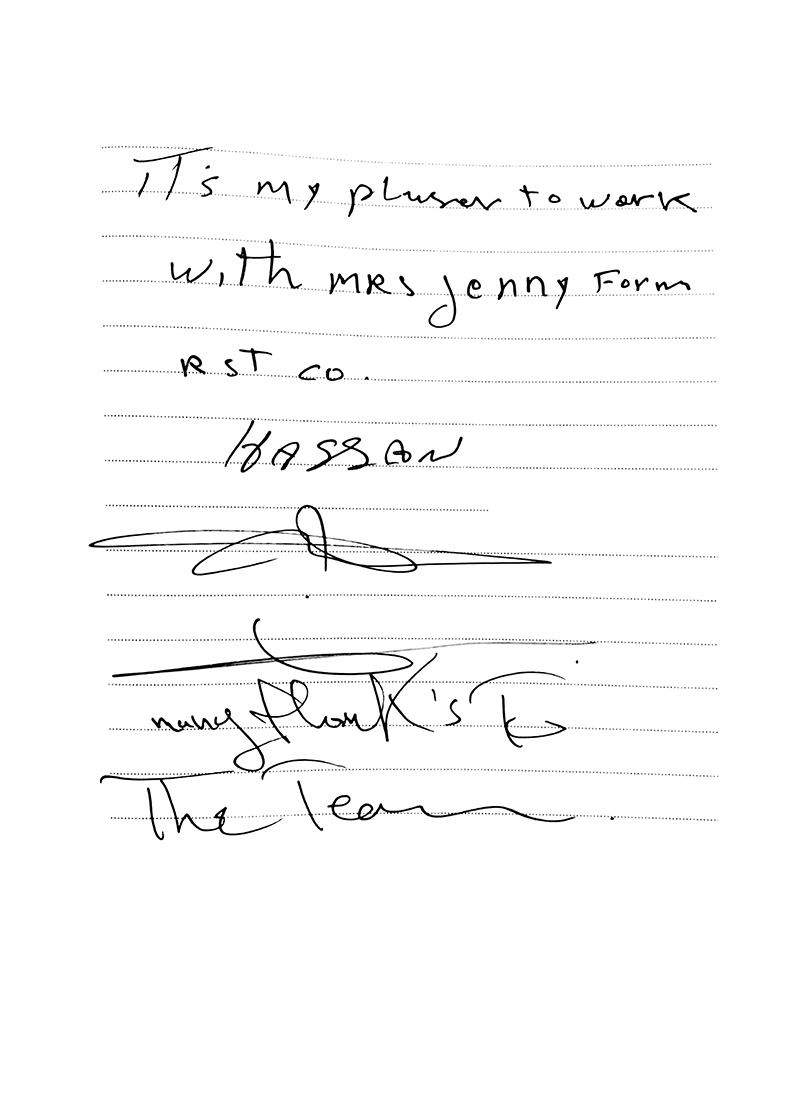 IT's my pluser to work
with MRS Jenny Form
RST co.
HASSAN
many thank's To
The Team.